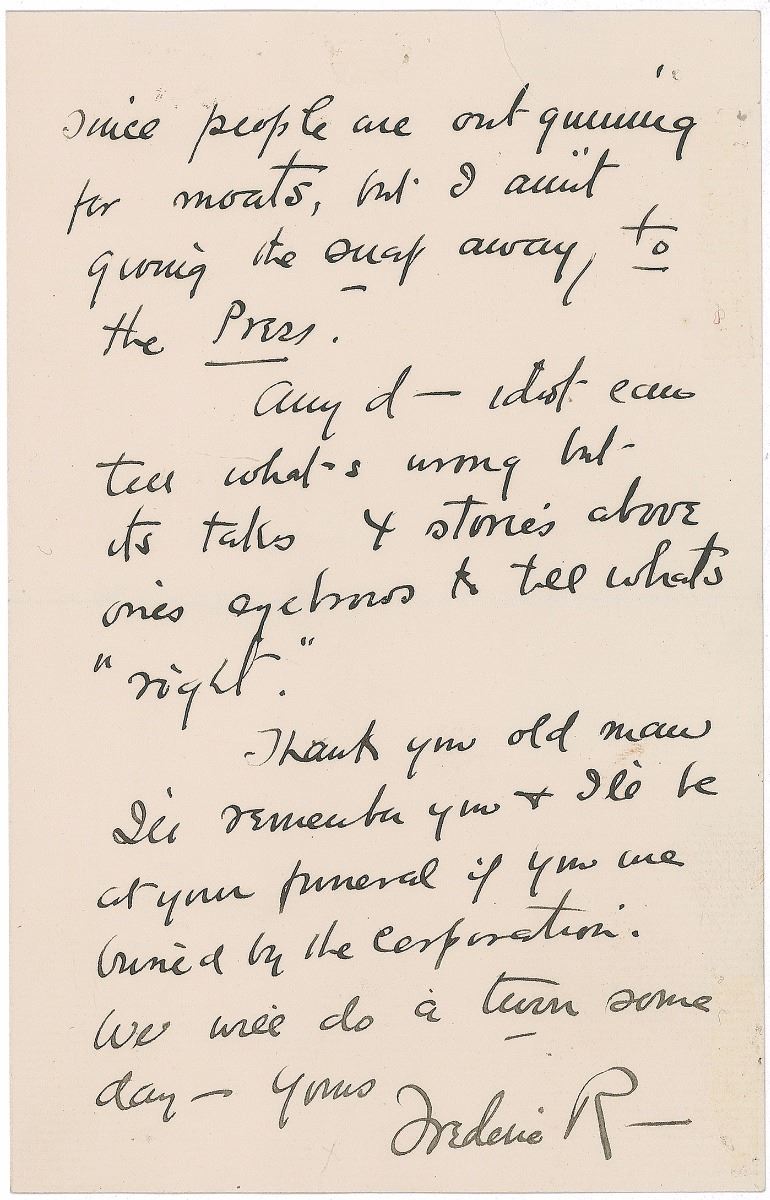 since people are out gunning
for moats, but I ain't
giving the snap away, to
the Press.
Any d— idiot can
tell what's wrong but
its takes 4 stories above
ones eyebrows to tell whats
"right."
Thank you old man
I'll remember you & I'll be
at your funeral if you are
buried by the corporation.
We will do a turn some
day — Yours
Frederic R—